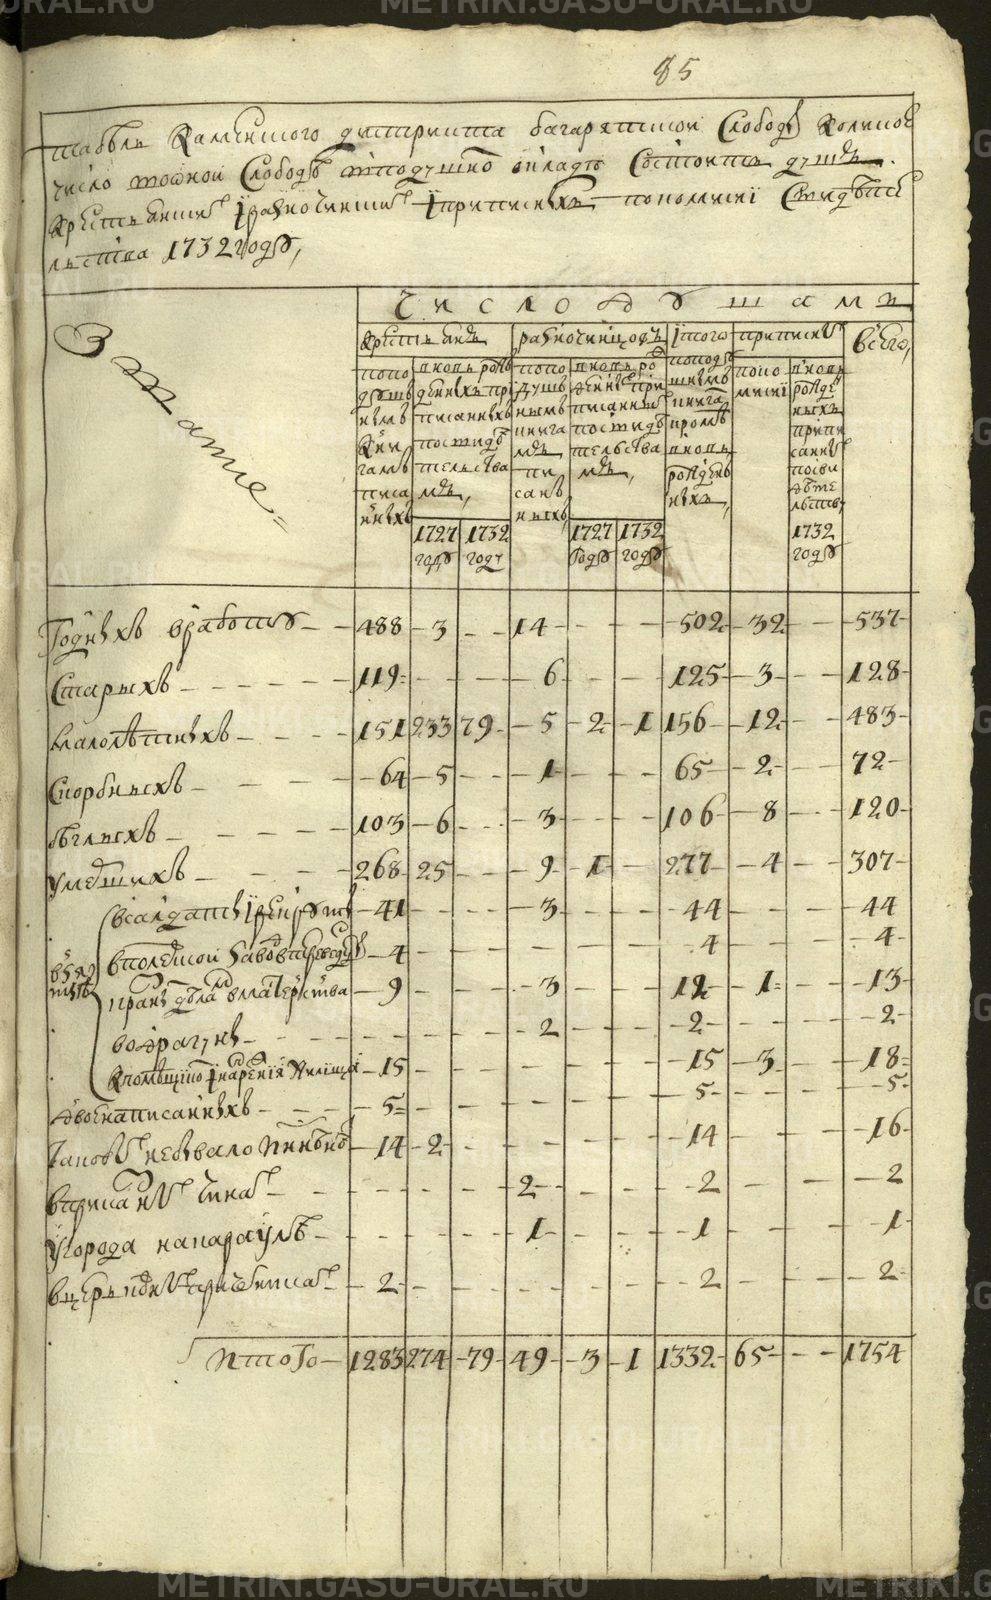 85
табель Каменского дистрикта багаряцкой Слободы Коликое
число во оной Слободе в подушном окладе Состоитъ душъ
крестьянских ї разночинских ї приписныхъ по комисиї Свидѣте
льства 1732 году,
Звание
Число душамъ
крестьянъ разночинцовъ ї того приписных всего,
по подушным книгам писанных
вновь рожденных приписанных по свидѣтельствамъ,
1727 году 1732 году
по подушным книгамъ писанных
вновь рожденных приписанных по свидѣтельствамъ,
1727 году 1732 году
по подушным книгам кромѣ вновь рожденныхъ,
по комисиї
вновь рожденыхъ приписанных по свидѣтельству 1732 году
Годныхъ в работу 488 3 - 14 - - 502 32 - 537
Старыхъ 119 - - 6 - - 125 3 - 128
малолѣтныхъ 151 233 79 5 2 1 156 12 - 483
Скорбныхъ 64 5 - 1 - - 65 2 - 72
бѣглыхъ 103 6 - 3 - - 106 8 - 120
умершихъ 268 25 - 9 1 - 277 4 - 307
взятыхъ
в салдаты ї рекруты 41 - - 3 - - 44 - - 44
4 - - - - - 4 - - 4
9 - - 3 - - 12 1 - 13
в драгуны - - - 2 - - 2 - - 2
15 - - - - - 15 3 - 18
двоенаписанныхъ 5 - - - - - 5 - - 5
14 2 - - - - 14 - - 16
- - - 2 - - 2 - - 2
у города на карауле - - - 1 - - 1 - - 1
2 - - - - - 2 - - 2
Итого 1283 274 79 49 3 1 1332 65 - 1754
METRIKI.GASU-URAL.RU